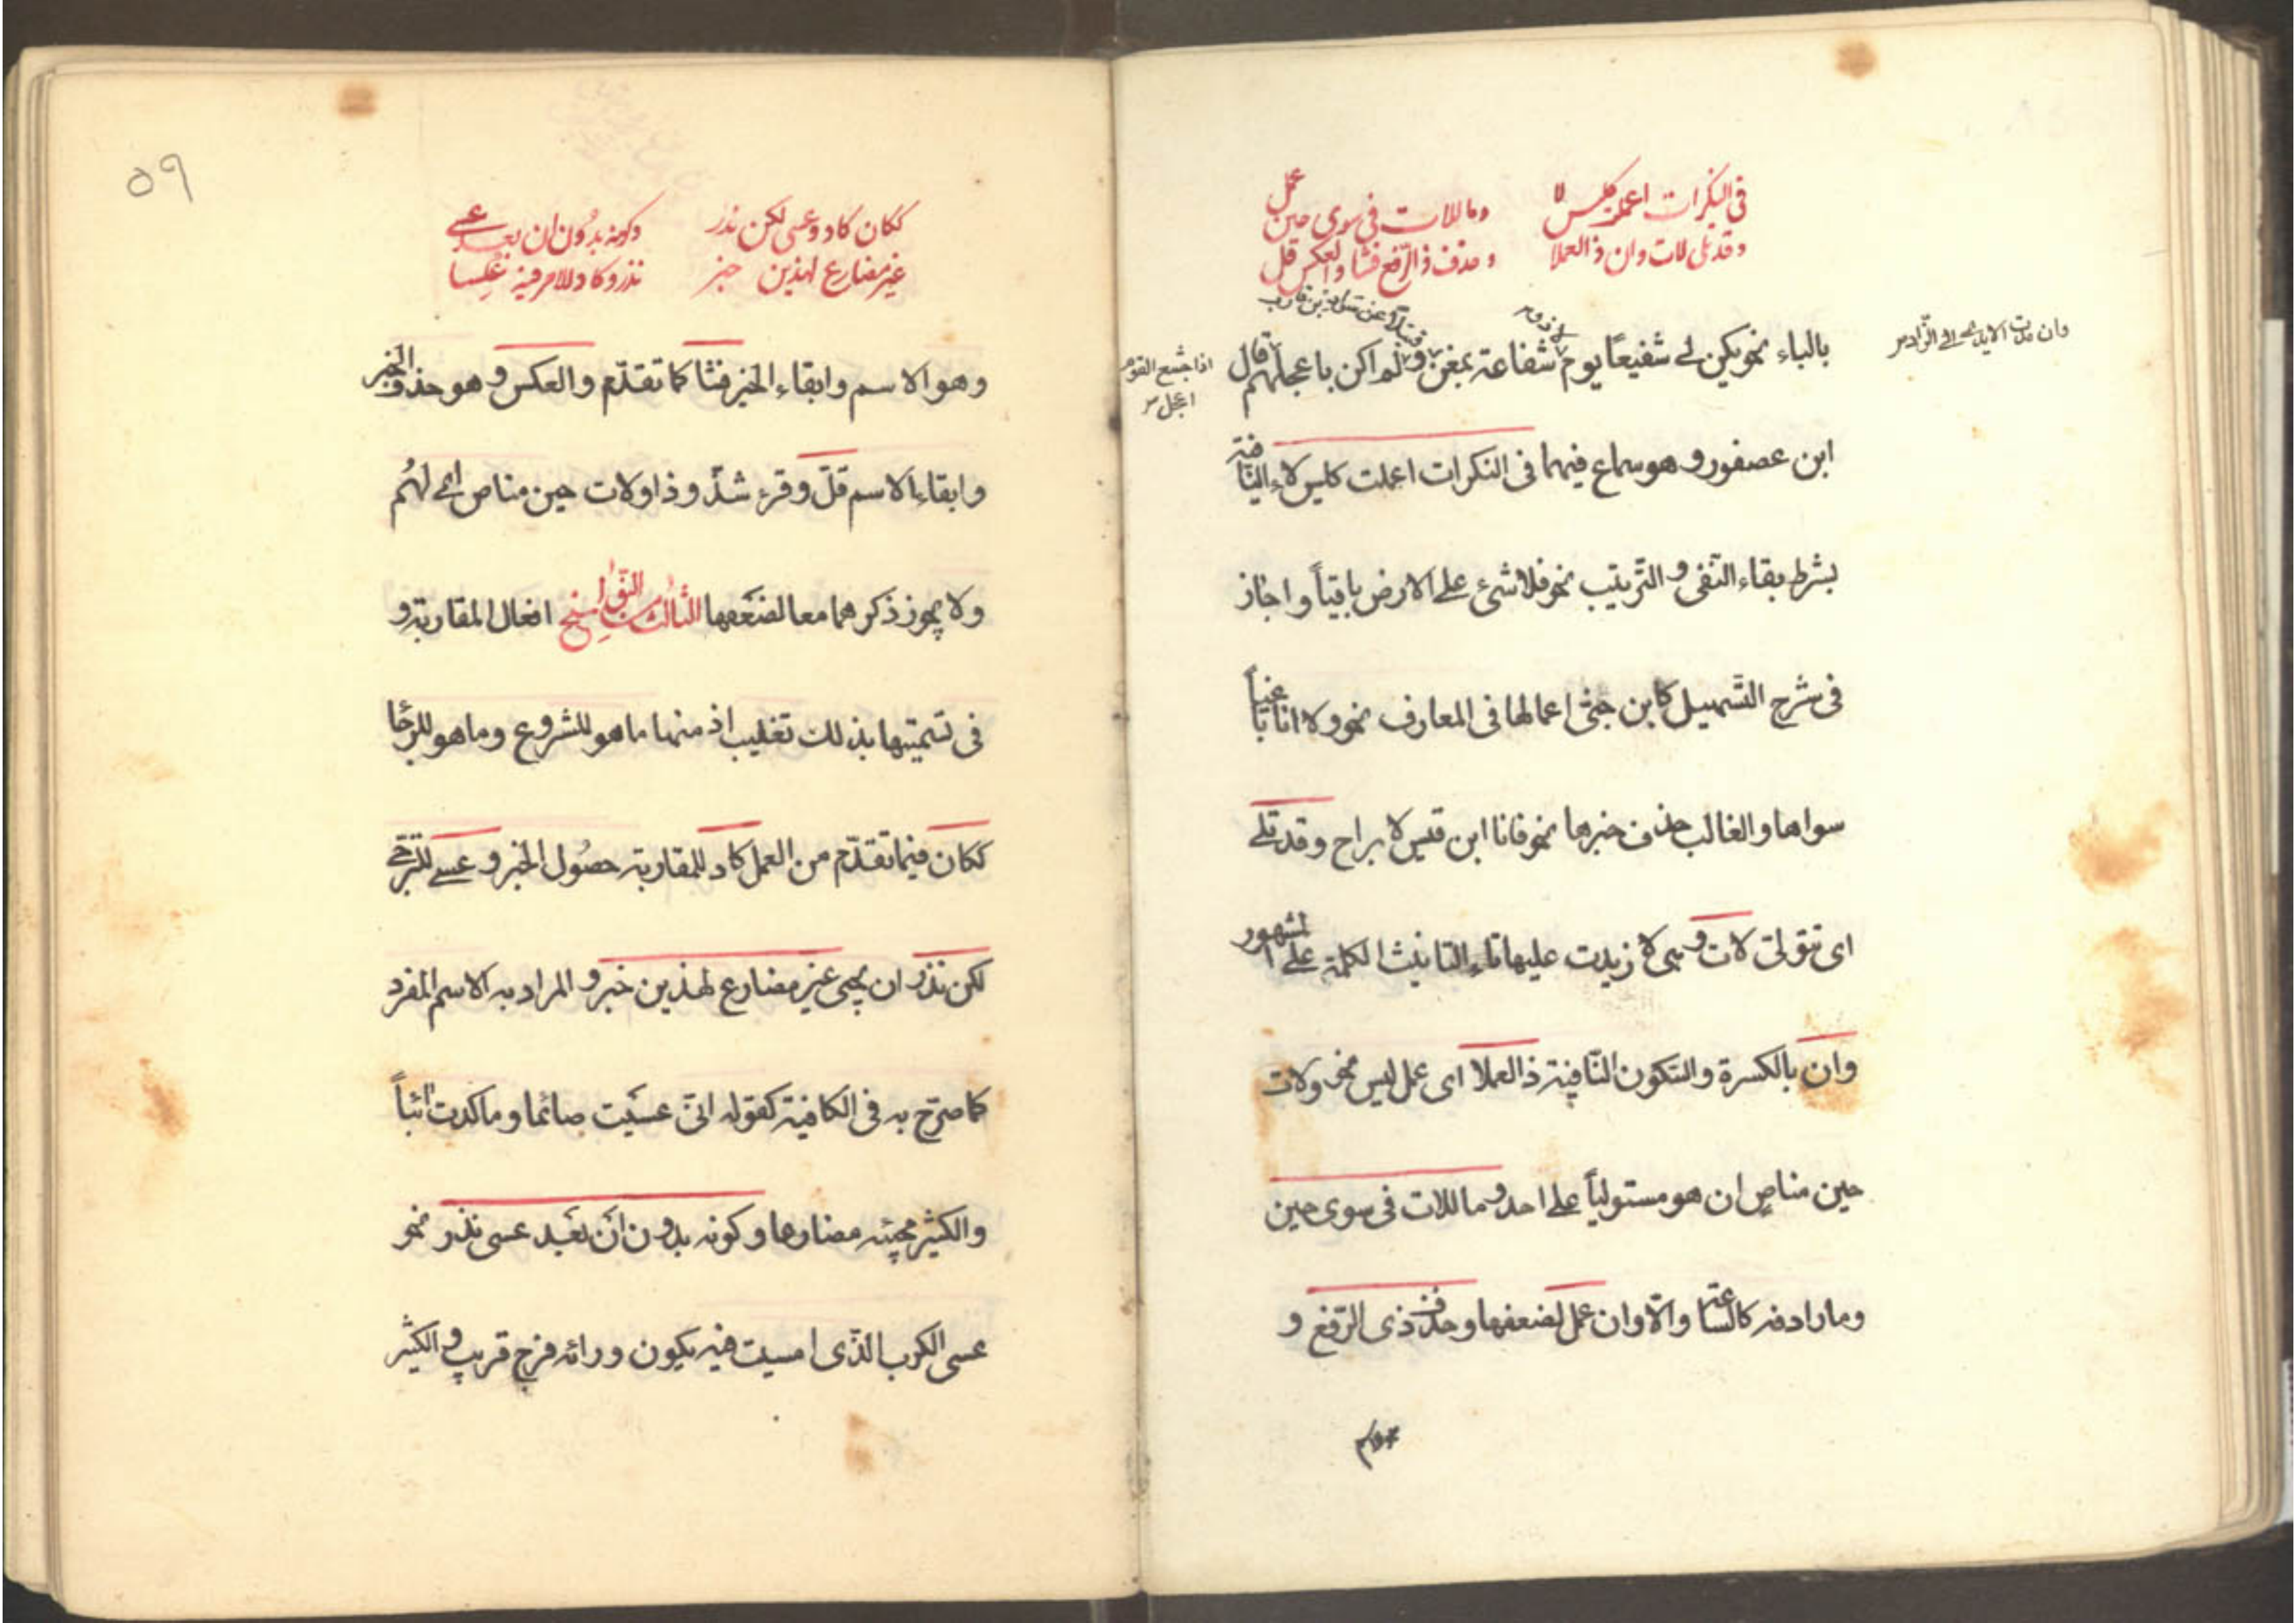 في النكرات اعملت كليس لا وما للات في سوى حين عمل
وقد تلى لات وان ذا العملا وحذف ذا الرّفع فشا والعكس قل
وان مدت الايدى الى الزاد
بالباء نحو يكن لى شفيعًا يوم لا ذو شفاعة بمغن فتيلا عن سواد بن قارب ولم اكن باعجلهم قال
اذا جشع القوم
اعجل
ابن عصفور وهو سماع فيهما فى النكرات اعملت كليس لاء النّافية
بشرط بقاء النّفى والتّرتيب نحو فلا شئ على الارض باقياً واجاز
فى شرح التّسهيل كابن جنّى اعمالها فى المعارف نحو ولا انا باغياً
سواها والغالب حذف خبرها نحو فانا ابن قيس لا براح وقد تلى
اى تتولى لات وهى لا زيدت عليها تاء التانيث الكلمة على المشهور
وان بالكسرة والسّكون النّافية ذا العملا اى عمل ليس نحو ولات
حين مناص ان هو مستولياً على احد وما للات فى سوى حين
وما رادفه كالسّاعة والاوان عمل لضعفها وحذف ذى الرّفع و
هو الا
٥٩
ككان كاد وعسى لكن ندر وكونه بدون ان بعد عسى
غير مضارع لهذين خبر نذر وكاد للامر فيه عُكسا
وهو الاسم وابقاء الخبر فشا كما تقدّم والعكس وهو حذف الخبر
وابقاء الاسم قلّ وقرء شذّوذا ولات حين مناص اى لهُم
ولا يجوز ذكرهما معا لضعفها الثّالث من النّواسخ افعال المقاربة و
فى تسميتها بذلك تغليب اذ منها ما هو للشروع وما هو للرجا
ككان فيما تقدّم من العمل كاد للمقاربة حصُول الخبر وعسى للترجّى
لكن نذر ان يجيئ غير مضارع لهذين خبر والمراد به الاسم المفرد
كما صرّح به فى الكافية كقوله انّى عسَيت صائما وما كدت ائباً
والكثير مجيئه مضارعا وكونه بدون اَن بَعْد عسى نذر نحو
عسى الكرب الّذى امسيت فيه يكون ورائه فرج قريب والكثير